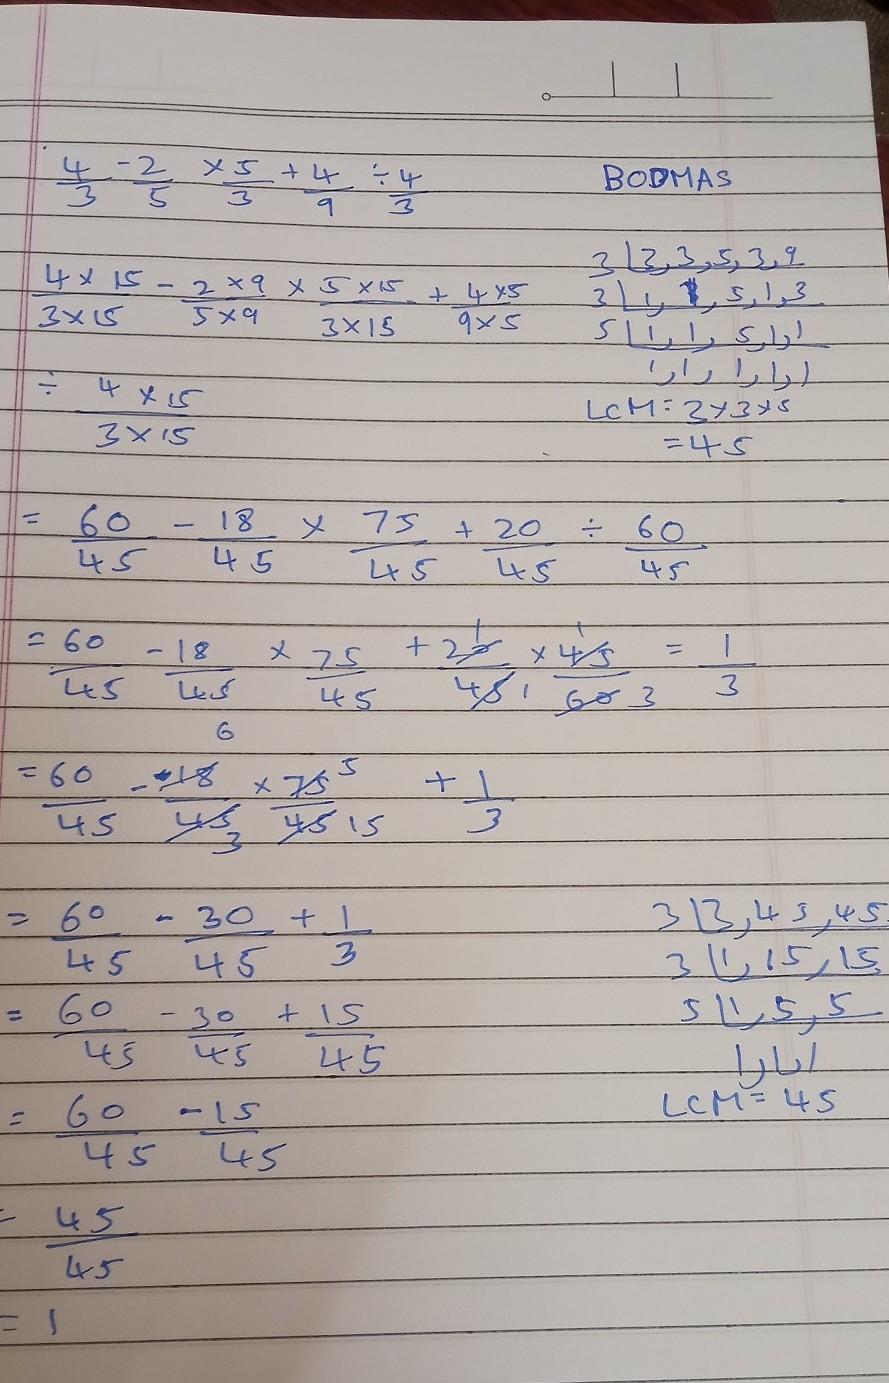 4/3 - 2/5 × 5/3 + 4/9 ÷ 4/3
BODMAS
(4 × 15)/(3 × 15) - (2 × 9)/(5 × 9) × (5 × 15)/(3 × 15) + (4 × 5)/(9 × 5)
÷ (4 × 15)/(3 × 15)
3 | 3, 3, 5, 3, 9
3 | 1, 1, 5, 1, 3
5 | 1, 1, 5, 1, 1
1, 1, 1, 1, 1
LCM = 3 × 3 × 5
= 45
= 60/45 - 18/45 × 75/45 + 20/45 ÷ 60/45
= 60/45 - 18/45 × 75/45 + 20/45 × 45/60 = 1/3
= 60/45 - 18/45 × 75/45 + 1/3
= 60/45 - 30/45 + 1/3
= 60/45 - 30/45 + 15/45
= 60/45 - 15/45
= 45/45
= 1
3 | 3, 45, 45
3 | 1, 15, 15
5 | 1, 5, 5
1, 1, 1
LCM = 45